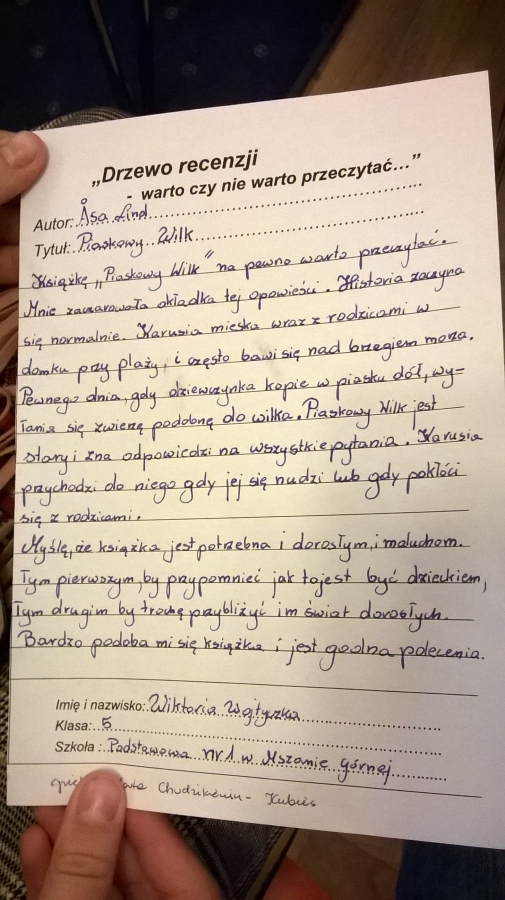 „Drzewo recenzji
- warto czy nie warto przeczytać...”
Autor: Åsa Lind
Tytuł: Piaskowy Wilk
Książkę „Piaskowy Wilk” na pewno warto przeczytać.
Mnie zaczarowała okładka tej opowieści. Historia zaczyna
się normalnie. Karusia mieszka wraz z rodzicami w
domku przy plaży, i często bawi się nad brzegiem morza.
Pewnego dnia, gdy dziewczynka kopie w piasku dół, wy-
łania się zwierzę podobne do wilka. Piaskowy Wilk jest
stary i zna odpowiedzi na wszystkie pytania. Karusia
przychodzi do niego gdy jej się nudzi lub gdy pokłóci
się z rodzicami.
Myślę, że książka jest potrzebna i dorosłym, i maluchom.
Tym pierwszym, by przypomnieć jak to jest być dzieckiem,
Tym drugim by trochę przybliżyć im świat dorosłych.
Bardzo podoba mi się książka i jest godna polecenia.
Imię i nazwisko: Wiktoria
Klasa: 5
Szkoła: Podstawowa nr 1 w Mszanie Górnej
Kubies